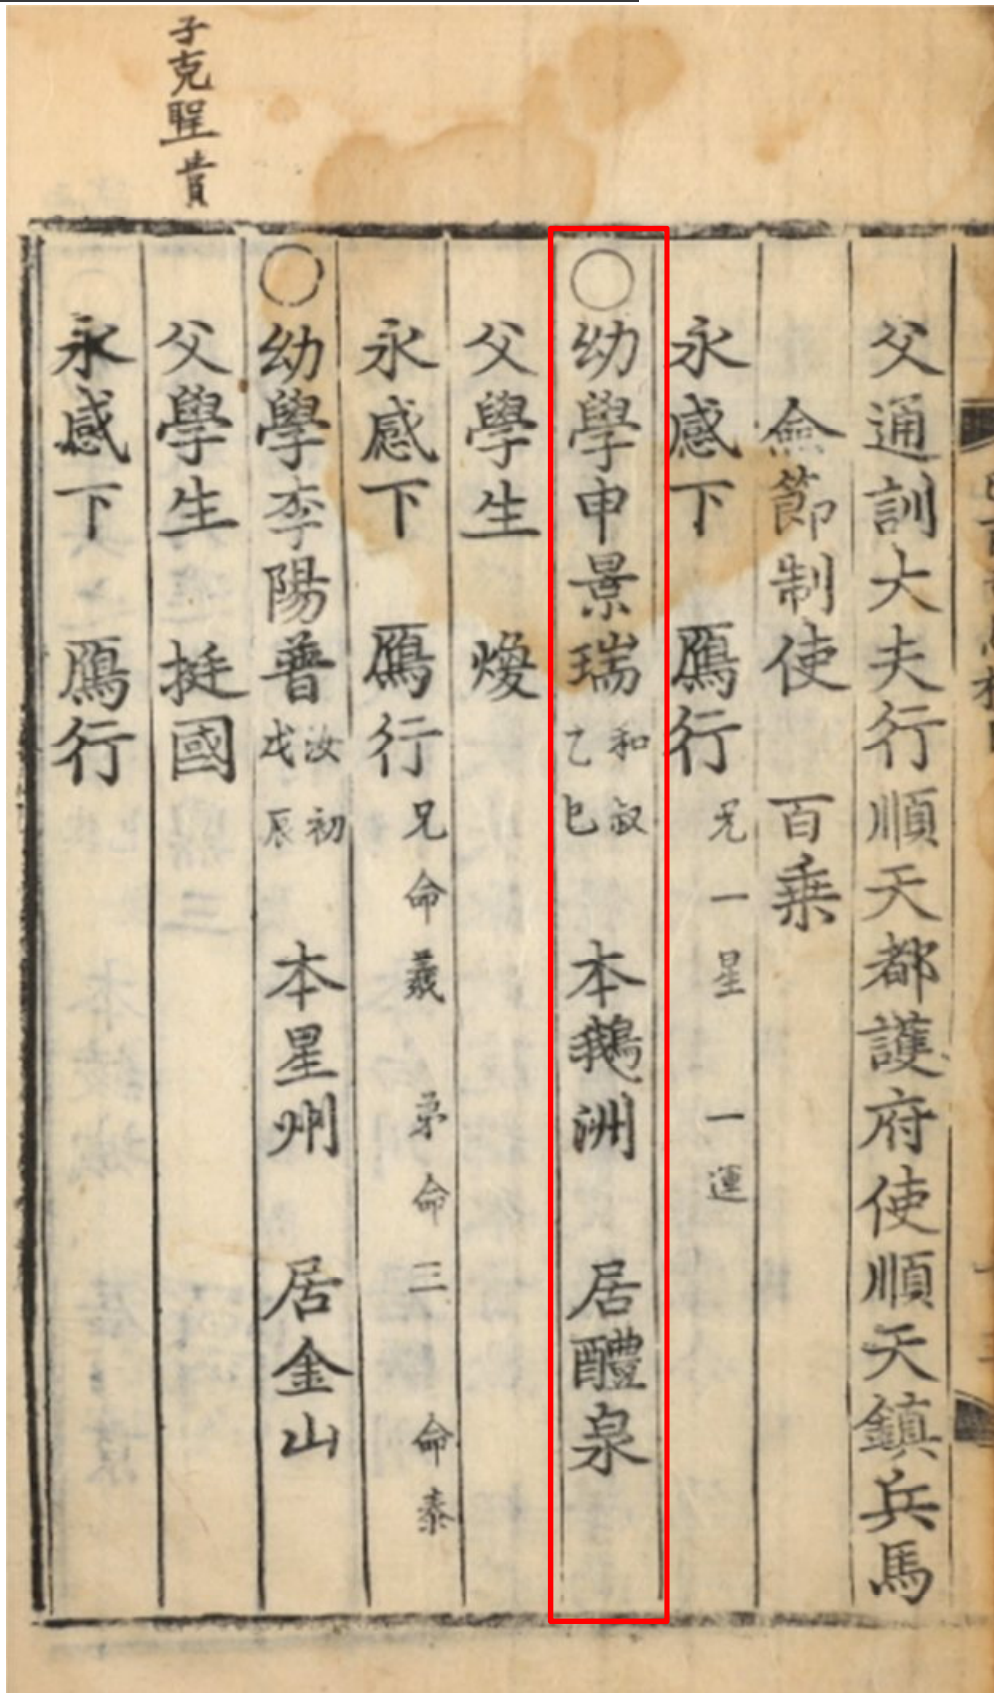 父通訓大夫行順天都護府使順天鎮兵馬
僉節制使　百乗
永感下　鴈行 兄一星　一運
○幼學申景瑞 和叔 乙巳　本鵝洲　居醴泉
父學生　煥
永感下　鴈行 兄命羲　弟命三　命泰
○幼學李陽普 汝初 戊辰　本星州　居金山
父學生　挺國
永感下　鴈行
子克聖貴